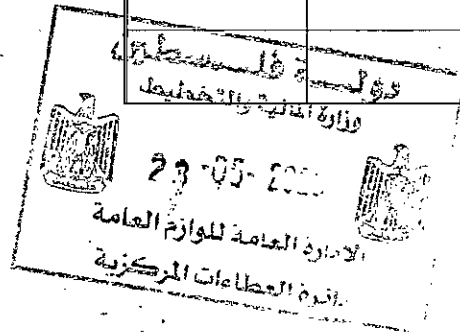 دولـــة فلـــسطين
وزارة المالية والتخطيط
23-05-
الادارة العامة للوازم العامة
دائرة العطاءات المركزية